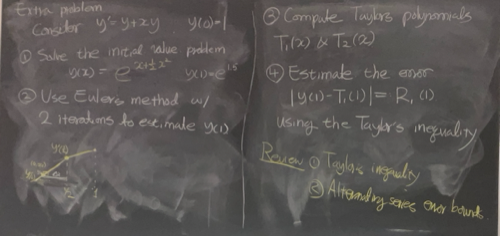 Extra problem
Consider y' = y + xy y(0) = 1
① Solve the initial value problem
y(x) = e^{x+½x²} y(1) = e^{1.5}
② Use Eulers method w/
2 iterations to estimate y(1)
y(x)
③ Compute Taylors polynomials
T₁(x) & T₂(x)
④ Estimate the error
|y(1) - T₁(1)| = R₁(1)
using the Taylors inequality
Review ① Taylors inequality
② Alternating series error bounds